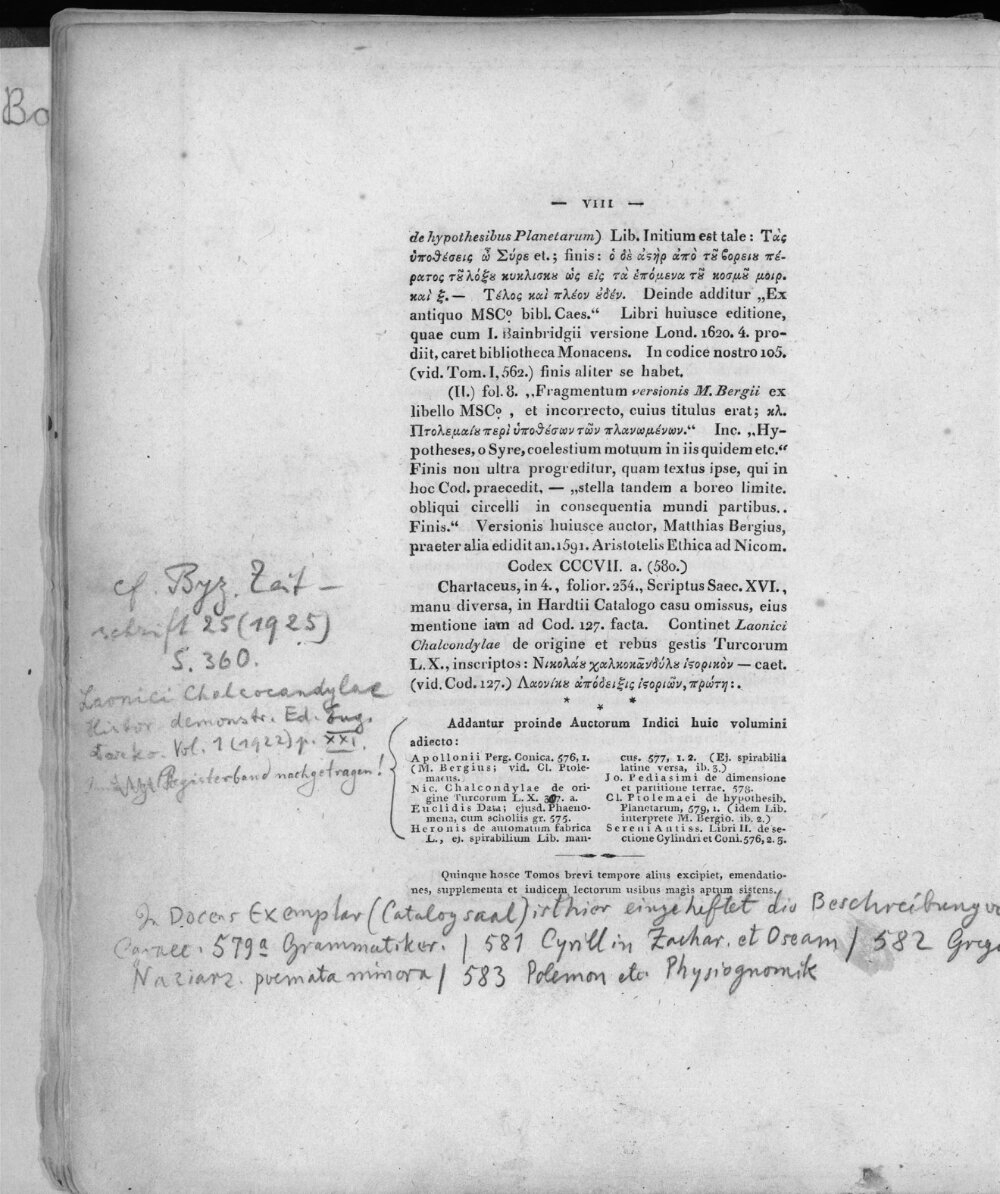 Bo
— VIII —
de hypothesibus Planetarum) Lib. Initium est tale: Τὰς
ὑποθέσεις ὦ Σύρε et.; finis: ὁ δὲ ἀςὴρ ἀπὸ τȣ͂ βορειȣ πέ-
ρατος τȣ͂ λόξȣ κυκλισκȣ ὡς εις τὰ ἑπόμενα τȣ͂ κοσμȣ͂ μοιρ.
καὶ ξ. — Τέλος καὶ πλέον ȣ̓δέν. Deinde additur „Ex
antiquo MSCo bibl. Caes.“ Libri huiusce editione,
quae cum I. Bainbridgii versione Lond. 1620. 4. pro-
diit, caret bibliotheca Monacens. In codice nostro 105.
(vid. Tom. I, 562.) finis aliter se habet.
(II.) fol. 8. „Fragmentum versionis M. Bergii ex
libello MSCo, et incorrecto, cuius titulus erat; κλ.
Πτολεμαίȣ περὶ ὑποθέσων τῶν πλανωμένων.“ Inc. „Hy-
potheses, o Syre, coelestium motuum in iis quidem etc.“
Finis non ultra progreditur, quam textus ipse, qui in
hoc Cod. praecedit, — „stella tandem a boreo limite.
obliqui circelli in consequentia mundi partibus..
Finis.“ Versionis huiusce auctor, Matthias Bergius,
praeter alia edidit an. 1591. Aristotelis Ethica ad Nicom.
Codex CCCVII. a. (580.)
Chartaceus, in 4., folior. 234., Scriptus Saec. XVI.,
manu diversa, in Hardtii Catalogo casu omissus, eius
mentione iam ad Cod. 127. facta. Continet Laonici
Chalcondylae de origine et rebus gestis Turcorum
L. X., inscriptos: Νικολάȣ χαλκοκανδύλȣ ἱςορικὸν — caet.
(vid. Cod. 127.) Λαονίκȣ ἀπόδειξις ἱςοριῶν, πρώτη:.
* * *
Addantur proinde Auctorum Indici huic volumini
adiecto:
Apollonii Perg. Conica. 576, 1.
(M. Bergius; vid. Cl. Ptole-
maeus.
Nic. Chalcondylae de ori-
gine Turcorum L. X. 307. a.
Euclidis Data; ejusd. Phaeno-
mena, cum scholiis gr. 575.
Heronis de automatum fabrica
L., ej. spirabilium Lib. man-
cus. 577, 1. 2. (Ej. spirabilia
latine versa, ib. 3.)
Jo. Pediasimi de dimensione
et partitione terrae. 578.
Cl. Ptolemaei de hypothesib.
Planetarum, 579, 1. (idem Lib.
interprete M. Bergio. ib. 2.)
Sereni Antiss. Libri II. de se-
ctione Cylindri et Coni. 576, 2. 3.
Quinque hosce Tomos brevi tempore alius excipiet, emendatio-
nes, supplementa et indicem lectorum usibus magis aptum sistens.
cf. Byz. Zeit-
schrift 25 (1925)
S. 360.
Laonici Chalcocandylae
Histor. demonstr. Ed. Eug.
Darko. Vol. 1 (1922) p. XXI.
Registerband nachgetragen!
In Docens Exemplar (Catalogsaal) ist hier eingeheftet die Beschreibung
579a Grammatiker. / 581 Cyrill in Zachar. et Oseam / 582 Grego
Nazianz. poemata minora / 583 Polemon etc. Physiognomik